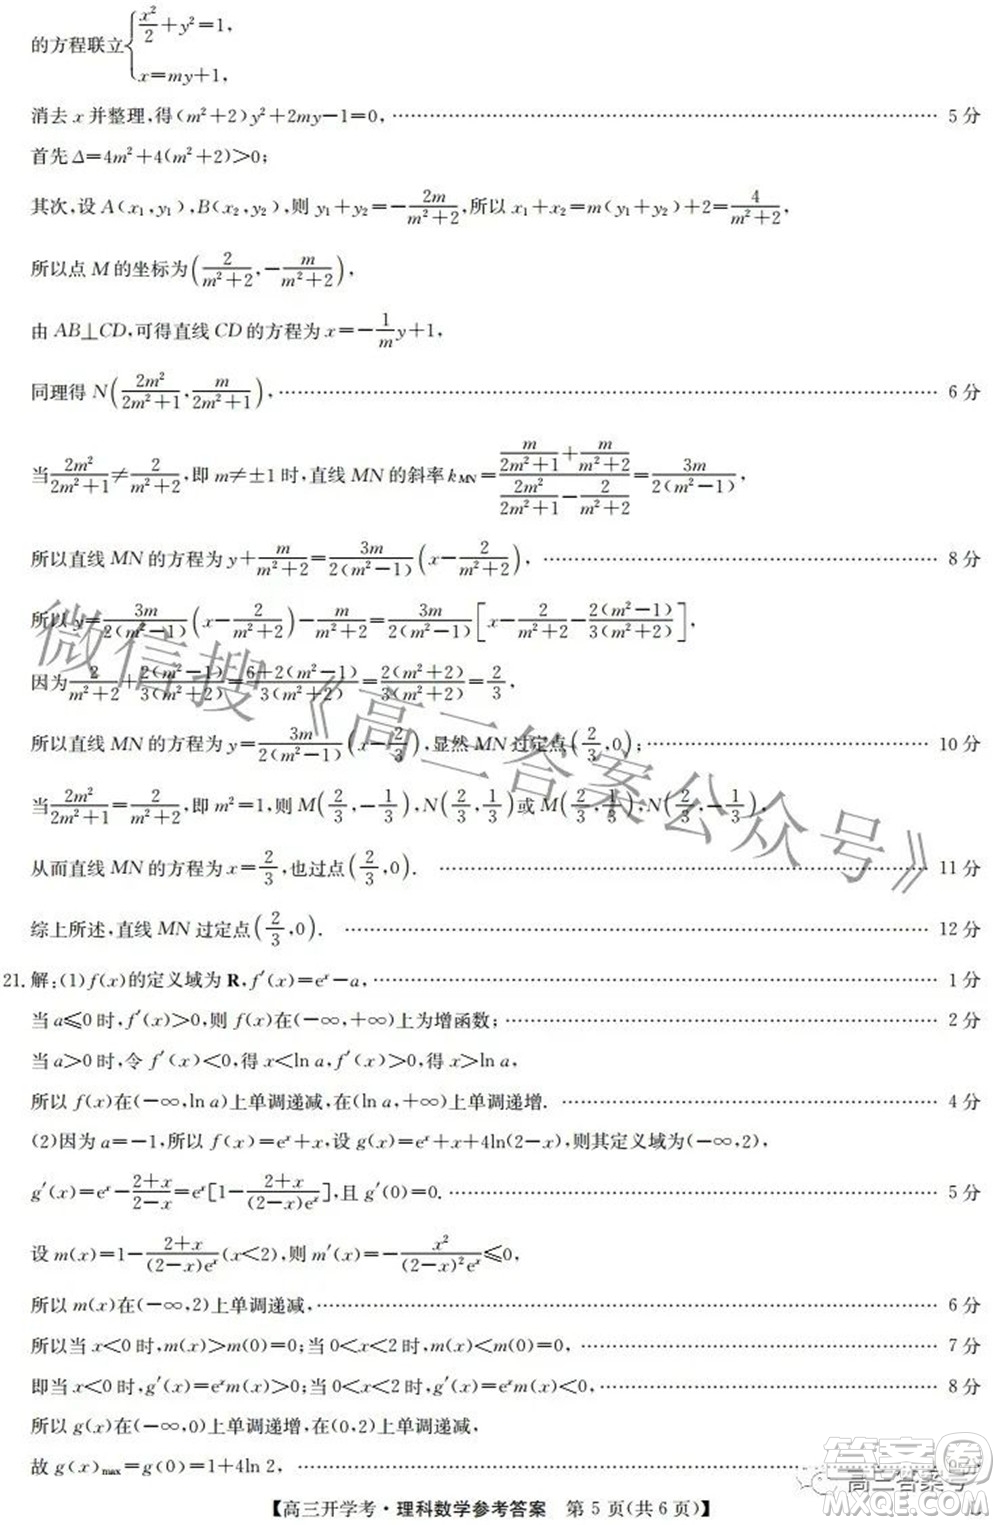 的方程联立{x²/2+y²=1,
x=my+1,
消去 x 并整理,得(m²+2)y²+2my−1=0, …… 5 分
首先 Δ=4m²+4(m²+2)>0;
其次,设 A(x₁,y₁),B(x₂,y₂),则 y₁+y₂=−2m/(m²+2),所以 x₁+x₂=m(y₁+y₂)+2=4/(m²+2),
所以点 M 的坐标为(2/(m²+2),−m/(m²+2)),
由 AB⊥CD,可得直线 CD 的方程为 x=−(1/m)y+1,
同理得 N(2m²/(2m²+1),m/(2m²+1)), …… 6 分
当2m²/(2m²+1)≠2/(m²+2),即 m≠±1 时,直线 MN 的斜率 k_MN=(m/(2m²+1)+m/(m²+2))/(2m²/(2m²+1)−2/(m²+2))=3m/(2(m²−1)),
所以直线 MN 的方程为 y+m/(m²+2)=3m/(2(m²−1))(x−2/(m²+2)), …… 8 分
所以 y=3m/(2(m²−1))(x−2/(m²+2))−m/(m²+2)=3m/(2(m²−1))[x−2/(m²+2)−2(m²−1)/(3(m²+2))],
因为2/(m²+2)+2(m²−1)/(3(m²+2))=(6+2(m²−1))/(3(m²+2))=2(m²+2)/(3(m²+2))=2/3,
所以直线 MN 的方程为 y=3m/(2(m²−1))(x−2/3),显然 MN 过定点(2/3,0); …… 10 分
当2m²/(2m²+1)=2/(m²+2),即 m²=1,则 M(2/3,−1/3),N(2/3,1/3)或 M(2/3,1/3),N(2/3,−1/3),
从而直线 MN 的方程为 x=2/3,也过点(2/3,0). …… 11 分
综上所述,直线 MN 过定点(2/3,0). …… 12 分
21. 解:(1)f(x)的定义域为 R,f′(x)=eˣ−a, …… 1 分
当 a≤0 时,f′(x)>0,则 f(x)在(−∞,+∞)上为增函数; …… 2 分
当 a>0 时,令 f′(x)<0,得 x<ln a,f′(x)>0,得 x>ln a,
所以 f(x)在(−∞,ln a)上单调递减,在(ln a,+∞)上单调递增. …… 4 分
(2)因为 a=−1,所以 f(x)=eˣ+x,设 g(x)=eˣ+x+4ln(2−x),则其定义域为(−∞,2),
g′(x)=eˣ−(2+x)/(2−x)=eˣ[1−(2+x)/((2−x)eˣ)],且 g′(0)=0. …… 5 分
设 m(x)=1−(2+x)/((2−x)eˣ)(x<2),则 m′(x)=−x²/((2−x)²eˣ)≤0,
所以 m(x)在(−∞,2)上单调递减, …… 6 分
所以当 x<0 时,m(x)>m(0)=0;当 0<x<2 时,m(x)<m(0)=0; …… 7 分
即当 x<0 时,g′(x)=eˣm(x)>0;当 0<x<2 时,g′(x)=eˣm(x)<0, …… 8 分
所以 g(x)在(−∞,0)上单调递增,在(0,2)上单调递减,
故 g(x)max=g(0)=1+4ln 2, ……
【高三开学考·理科数学参考答案 第 5 页(共 6 页)】
微信搜《高三答案公众号》
高三答案号
答案圈
MXQE.COM